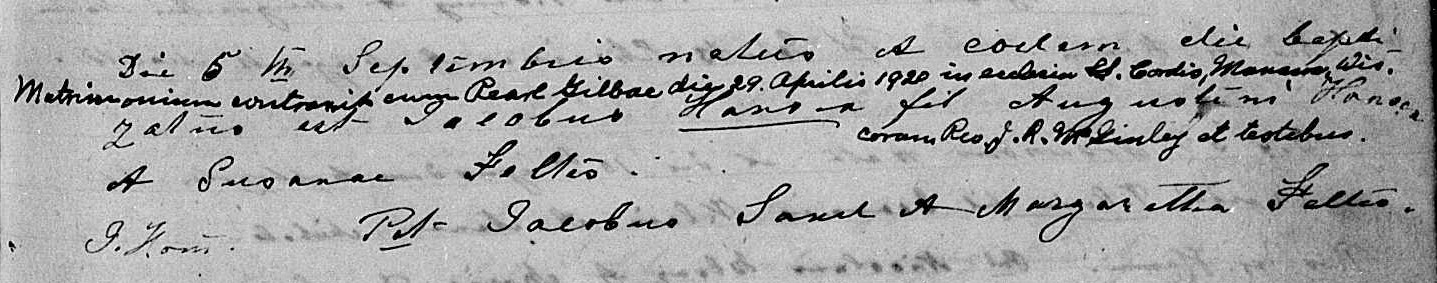 Die 5 th Septembris natus et eodem die bapti
Matrimonium contraxit cum Pearl Gilbae die 29. Aprilis 1920 in ecclesia St. Cordis, Wis.
zatus est Jacobus Hansen fil Augustini Hansen
coram Rev. J. R. McGinley et testibus.
et Susanae Feltes.
J. Pat Jacobus et Margaretha Feltes.